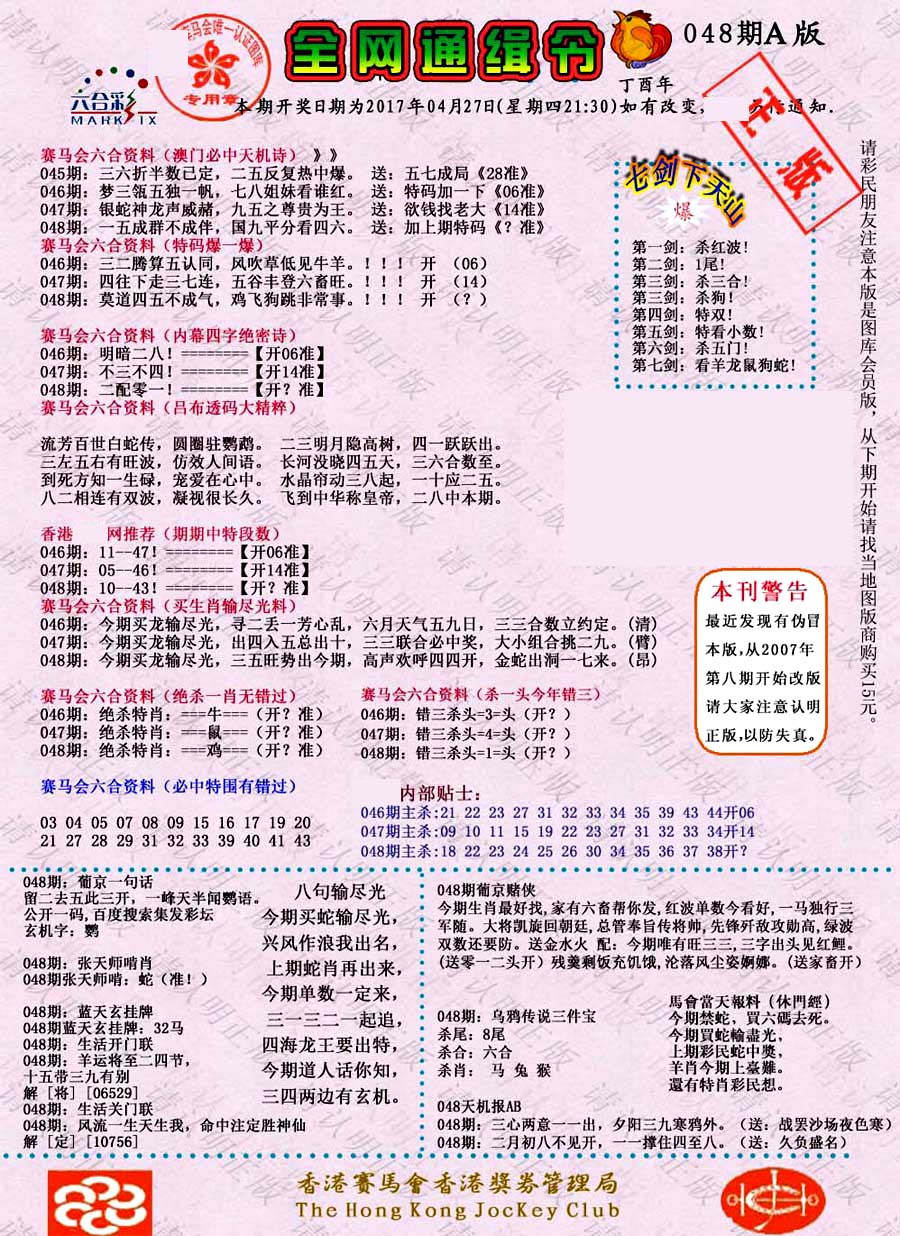 全网通缉令
048期A版
丁酉年
赛马会唯一认证图库
专用章
六合彩
MARK SIX
本期开奖日期为2017年04月27日(星期四21:30)如有改变,
通知.
正版
赛马会六合资料（澳门必中天机诗）》》
045期: 三六折半数已定, 二五反复热中爆。 送: 五七成局《28准》
046期: 梦三瓴五独一帆, 七八姐妹看谁红。 送: 特码加一下《06准》
047期: 银蛇神龙声威赭, 九五之尊贵为王。 送: 欲钱找老大《14准》
048期: 一五成群不成伴, 国九平分看四六。 送: 加上期特码《? 准》
赛马会六合资料（特码爆一爆）
046期: 三二腾算五认同, 风吹草低见牛羊。！！！ 开 （06）
047期: 四往下走三七连, 五谷丰登六畜旺。！！！ 开 （14）
048期: 莫道四五不成气, 鸡飞狗跳非常事。！！！ 开 （? ）
赛马会六合资料（内幕四字绝密诗）
046期: 明暗二八! ========【开06准】
047期: 不三不四! ========【开14准】
048期: 二配零一! ========【开? 准】
赛马会六合资料（吕布透码大精粹）
流芳百世白蛇传, 圆圈驻鹦鹉。 二三明月隐高树, 四一跃跃出。
三左五右有旺波, 仿效人间语。 长河没晓四五天, 三六合数至。
到死方知一生碌, 宠爱在心中。 水晶帘动三八起, 一十应二五。
八二相连有双波, 凝视很长久。 飞到中华称皇帝, 二八中本期。
香港 网推荐（期期中特段数）
046期: 11--47! ========【开06准】
047期: 05--46! ========【开14准】
048期: 10--43! ========【开? 准】
赛马会六合资料（买生肖输尽光料）
046期: 今期买龙输尽光, 寻二丢一芳心乱, 六月天气五九日, 三三合数立约定。(清)
047期: 今期买龙输尽光, 出四入五总出十, 三三联合必中奖, 大小组合挑二九。(臂)
048期: 今期买龙输尽光, 三五旺势出今期, 高声欢呼四四开, 金蛇出洞一七来。(昂)
赛马会六合资料（绝杀一肖无错过）
046期: 绝杀特肖: ===牛===（开? 准）
047期: 绝杀特肖: ===鼠===（开? 准）
048期: 绝杀特肖: ===鸡===（开? 准）
赛马会六合资料（杀一头今年错三）
046期: 错三杀头=3=头（开? ）
047期: 错三杀头=4=头（开? ）
048期: 错三杀头=1=头（开? ）
赛马会六合资料（必中特围有错过）
03 04 05 07 08 09 15 16 17 19 20
21 27 28 29 31 32 33 39 40 41 43
内部贴士:
046期主杀:21 22 23 27 31 32 33 34 35 39 43 44开06
047期主杀:09 10 11 15 19 22 23 27 31 32 33 34开14
048期主杀:18 22 23 24 25 26 30 34 35 36 37 38开?
七剑下天山
爆
第一剑: 杀红波!
第二剑: 1尾!
第三剑: 杀三合!
第三剑: 杀狗!
第四剑: 特双!
第五剑: 特看小数!
第六剑: 杀五门!
第七剑: 看羊龙鼠狗蛇!
请彩民朋友注意本版是图库会员版, 从下期开始请找当地图版商购买15元。
本刊警告
最近发现有伪冒
本版,从2007年
第八期开始改版
请大家注意认明
正版,以防失真。
048期: 葡京一句话
留二去五此三开, 一峰天半闻鹦语。
公开一码,百度搜索集发彩坛
玄机字: 鹦
048期: 张天师啃肖
048期张天师啃: 蛇（准! ）
048期: 蓝天玄挂牌
048期蓝天玄挂牌: 32马
048期: 生活开门联
048期: 羊运将至二四节,
十五带三九有别
解 [将] [06529]
048期: 生活关门联
048期: 风流一生天生我, 命中注定胜神仙
解 [定] [10756]
八句输尽光
今期买蛇输尽光,
兴风作浪我出名,
上期蛇肖再出来,
今期单数一定来,
三一三二一起追,
四海龙王要出特,
今期道人话你知,
三四两边有玄机。
048期葡京赌侠
今期生肖最好找,家有六畜帮你发,红波单数今看好,一马独行三
军随。大将凯旋回朝廷,总管奉旨传将帅,先锋歼敌攻勋高,绿波
双数还要防。送金水火 配: 今期唯有旺三三,三字出头见红鲤。
(送零一二头开) 残羹剩饭充饥饿,沦落风尘姿婀娜。(送家畜开)
048期: 乌鸦传说三件宝
杀尾: 8尾
杀合: 六合
杀肖: 马 兔 猴
馬會當天報料（休門經）
今期禁蛇, 買六碼去死。
今期買蛇輸盡光,
上期彩民蛇中獎,
羊肖今期上臺難。
還有特肖彩民想。
048天机报AB
048期: 三心两意一一出, 夕阳三九寒鸦外。（送: 战罢沙场夜色寒）
048期: 二月初八不见开, 一一撑住四至八。（送: 久负盛名）
香港賽馬會香港獎券管理局
The Hong Kong JocKey Club